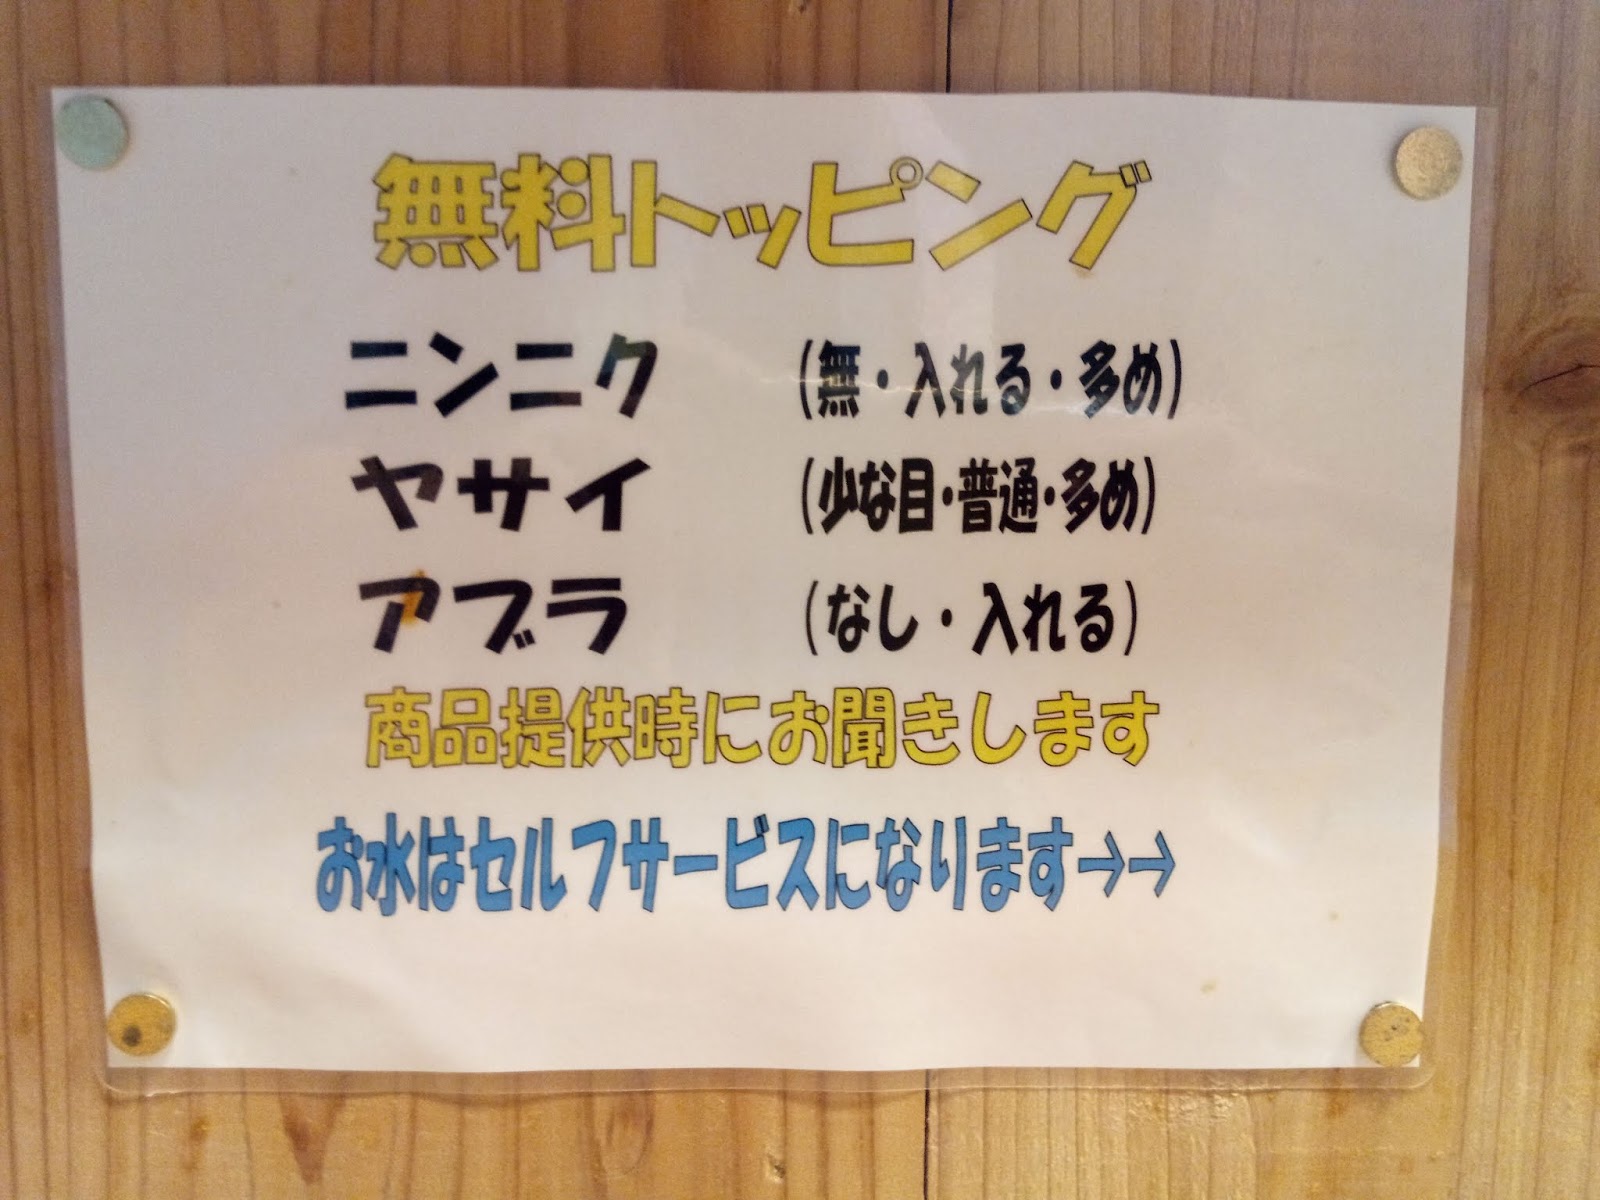 無料トッピング
ニンニク (無・入れる・多め)
ヤサイ (少な目・普通・多め)
アブラ (なし・入れる)
商品提供時にお聞きします
お水はセルフサービスになります→→